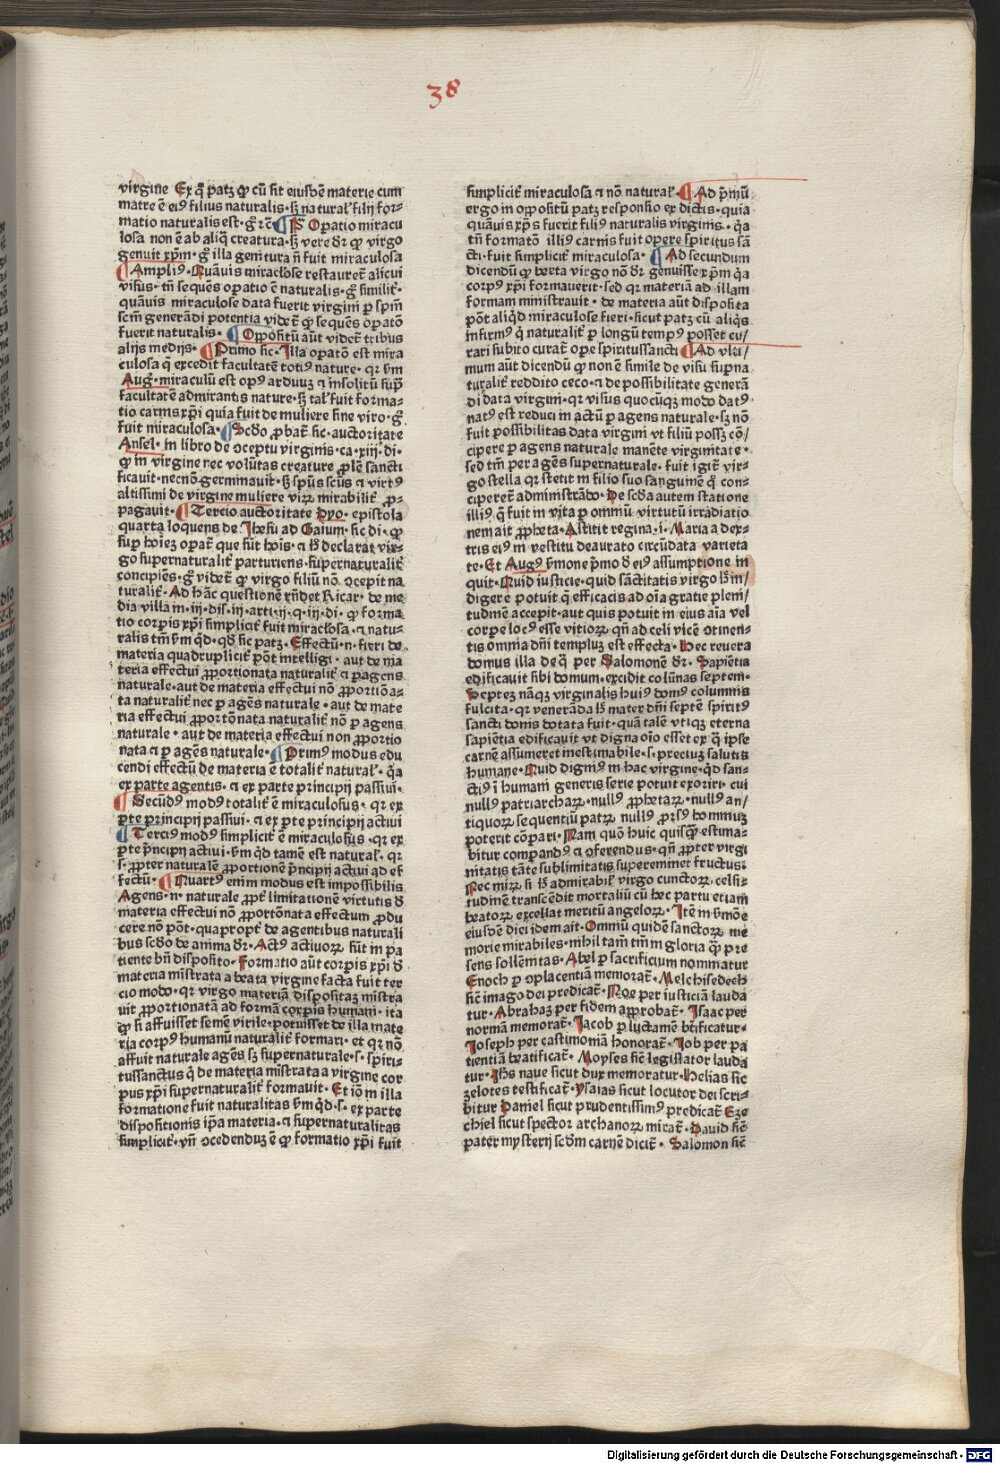 38
virgine Ex q̄ patꝫ ꝙ cū sit eiusdē materie cum
matre ē eiꝰ filius naturalis · sꝫ natural' filij for-
matio naturalis est · gͦ ⁊ē ¶ P̄ Oꝑatio miracu
losa non ē ab aliq̄ creatura · sꝫ vere dꝛ ꝙ virgo
genuit xp̄m · gͦ illa genitura nͦ fuit miraculosa
¶ Ampliꝰ · Quāuis miracłose restauret̄ alicui
visus · tn̄ seques oꝑatio ē naturalis · gͦ similiť ·
quāuis miraculose data fuerit virgini ꝑ spm̄
scm̄ generādi potentia videť ꝙ seques oꝑatō
fuerit naturalis · ¶ Oppositū aūt videť tribus
alijs medijs · ¶ Primo sic · Illa oꝑatō est mira
culosa q̄ excedit facultatē totiꝰ nature · qꝛ ẜm
Augͬ · miraculū est opꝰ arduuꝫ ⁊ insolitū suꝑ
facultatē admirantis nature · sꝫ tal' fuit forma-
tio carnis xp̄i quia fuit de muliere sine viro · gͦ
fuit miraculosa · ¶ Scd̄o ꝓbať sic · auctoritate
Ansel · in libro de ꝯceptu virginis · ca · xiij · di ·
ꝙ in virgine nec volūtas creature ꝓlē sancti
ficauit · necnō germinauit · sꝫ spūs scūs ⁊ virtꝰ
altissimi de virgine muliere viꝝ mirabiliť ꝓ-
pagauit · ¶ Tercio auctoritate Dyo · epistola
quarta loquens de Ihesu ad Gaium · sic di · ꝙ
suꝑ hoīez oꝑať que sūt hoīs · ⁊ h̄ declarat vir-
go supernaturaliť parturiens · supernaturaliť
concipiēs · gͦ videť ꝙ virgo filiū nō ꝯcepit na
turaliť · Ad hāc questionē rn̄det Ricar · de me
dia villa in · iij · dis · iij · arti · ij · q · iij · di · ꝙ forma
tio corꝑis xp̄i simpliciť fuit miracłosa · ⁊ natu-
ralis tm̄ ẜm qd · qd̄ sic patꝫ · Effectū · n · fieri de
materia quadrupliciť pōt intelligi · aut de ma
teria effectui ꝓportionata naturaliť ⁊ ꝑ agens
naturale · aut de materia effectui nō ꝓportiōa-
ta naturaliť nec ꝑ agēs naturale · aut de mate
ria effectui ꝓportōnata naturaliť nō ꝑ agens
naturale · aut de materia effectui non ꝓportio
nata ⁊ ꝑ agēs naturale · ¶ Primꝰ modus edu
cendi effectū de materia ē totaliť natural' · q̄a
ex parte agentis · ⁊ ex parte principij passiui ·
¶ Secūdꝰ modꝰ totaliť ē miraculosus · qꝛ ex
ꝑte principij passiui · ⁊ ex ꝑte principij actiui
¶ Terciꝰ modꝰ simpliciť ē miraculosus · qꝛ ex
ꝑte p̄ncipij actiui · ẜm qd tamē est natural' · qꝛ
s · ꝓpter naturalē ꝓportionē p̄ncipij actiui ad ef
fectū · ¶ Quartꝰ enim modus est impossibilis
Agens · n · naturale ꝓpt̄ limitationē virtutis d̄
materia effectui nō ꝓportōnata effectum ꝓdu
cere nō pōt · quapropť de agentibus naturali
bus scd̄o de anima dꝛ · Actꝰ actiuoꝝ sūt in pa
tiente bn̄ disposito · Formatio aūt corꝑis xp̄i d̄
materia mīstrata a beata virgine facta fuit ter
cio modo · qꝛ virgo materiā dispositaꝫ mīstra
uit ꝓportionatā ad formā corꝑis humani · ita
ꝙ si affuisset semē virile · potuisset de illa mate
ria corpꝰ humanū naturaliť formari · et qꝛ nō
affuit naturale agēs sꝫ supernaturale · s · spiri-
tussanctus q̄ de materia mīstrata a virgine cor
pus xp̄i supernaturaliť formauit · Et iō in illa
formatione fuit naturalitas ẜm qd · s · ex parte
dispositionis ip̄a materia · ⁊ supernaturalitas
simpliciť · vn̄ ꝯcedenduꝫ ē ꝙ formatio xp̄i fuit
simpliciť miraculosa ⁊ nō natural' · ¶ Ad p̄mū
ergo in oppositū patꝫ responsio ex dictis · quia
quāuis xp̄s fuerit filiꝰ naturalis virginis · q̄a
tn̄ formatō illiꝰ carnis fuit opere spiritus sā
cti · fuit simpliciť miraculosa · ¶ Ad secundum
dicendū ꝙ beata virgo nō dꝛ genuisse xp̄m q̄a
corpꝰ xp̄i formauerit · sed qꝛ materiā ad illam
formam ministrauit · de materia aūt disposita
pōt aliqd miraculose fieri · sicut patꝫ cū aliq̄s
infirmꝰ q̄ naturaliť ꝑ longū tempꝰ posset cu/
rari subito curať oꝑe spiritussancti ¶ Ad vlti/
mum aūt dicendū ꝙ non ē simile de visu suꝑna
turaliť reddito ceco · ⁊ de possibilitate generā
di data virgini · qꝛ visus quocūqꝫ modo datꝰ
natꝰ est reduci in actū ꝑ agens naturale · sꝫ nō
fuit possibilitas data virgini vt filiū possꝫ cō/
cipere ꝑ agens naturale manēte virginitate ·
sed tm̄ per agēs supernaturale · fuit igiť vir-
go stella qꝛ stetit in filio suo sanguinē q̄ con-
cipereť administrādo · De scd̄a autem statione
illiꝰ q̄ fuit in vita ꝑ omniū virtutū irradiatio
nem ait ꝓpheta · Astitit regina · i · Maria a dex-
tris eiꝰ in vestitu deaurato circūdata varieta
te · Et Augꝰ ẜmone p̄mo d̄ eiꝰ assumptione in
quit · Quid iusticie · quid sāctitatis virgo h̄ in/
digere potuit q̄ efficacis ad oīa gratie pleni/
tudinē accepit · aut quis potuit in eius aīa vel
corpe locꝰ esse vitioꝝ qn̄ ad celi vicē ꝯtinen-
tis omnia dn̄i templuꝫ est effecta · Hec reuera
domus illa de q̄ per Salomonē dꝛ · Sapiētia
edificauit sibi domum · excidit colūnas septem ·
Septeꝫ nāqꝫ virginalis huiꝰ domꝰ columnis
fulcita · qꝛ venerāda h̄ mater dn̄i septē spiritꝰ
sancti donis dotata fuit · quā talē vtiqꝫ eterna
sapiētia edificauit vt digna oīo esset ex q̄ ipse
carnē assumeret inestimabile · s · precium salutis
humane · Quid digniꝰ in hac virgine · qd san-
ctiꝰ ī humani generis serie potuit exoriri · cui
nullꝰ patriarchaꝝ · nullꝰ ꝓphetaꝝ · nullꝰ an/
tiquoꝝ sequentiū patꝝ nullꝰ ꝓrsꝰ hominuꝫ
poterit cōparari · Nam quō huic quisꝙ̄ estima-
bitur compandꝰ ⁊ ꝯferendus · qn̄ ꝓpter virgi
nitatis tāte sublimitatis supereminet fructus ·
Nec miꝝ si h̄ admirabil' virgo cunctoꝝ celsi-
tudinē transcēdit mortaliū cū hec partu etiam
beatoꝝ excellat meritū angeloꝝ · Itē in ẜmōe
eiusdē diei idem ait · Omniū quidē sanctoꝝ me
morie mirabiles · nihil tam̄ tm̄ in gloria q̄ pre
sens sollēnitas · Abel ꝑ sacrificium nominatur
Enoch ꝑ ꝯplacentiā memorať · Melchisedech
sic̄ imago dei predicať · Noe per iusticiā lauda
tur · Abrahaꝫ per fidem approbať · Isaac per
normā memorať · Jacob ꝑ luctamē bn̄ficatur ·
Joseph per castimoniā honorať · Iob per pa
tientiā beatificať · Moyses sic̄ legislator lauda
tur · Jhs naue sicut dux memoratur · Helias sic
zelotes testificať · Ysaias sicut locutor dei scri-
bitur Daniel sicut prudentissimꝰ predicať Eze
chiel sicut spector archanoꝝ mirať · Dauid sic̄
pater mysterij scdm carnē diciť · Salomon sic̄
Digitalisierung gefördert durch die Deutsche Forschungsgemeinschaft - DFG